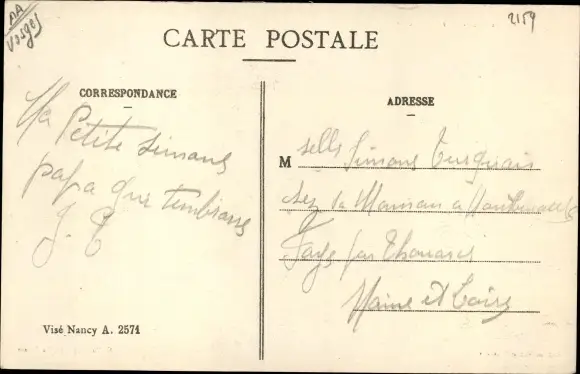 AA
Vosges
2159
CARTE POSTALE
CORRESPONDANCE
Ma Petite Simone
papa qui
J. T
Visé Nancy A. 2571
ADRESSE
M selle Simone Turquais
chez sa Maman a
Faye par Thouarcé
Maine et Loire